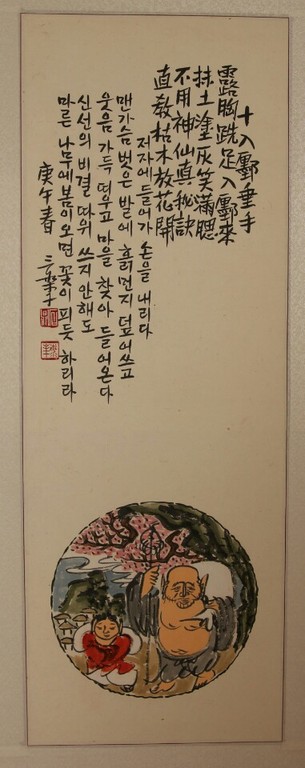 十入鄽垂手
露胸跣足入鄽來
抹土塗灰笑滿腮
不用神仙真秘訣
直教枯木放花開
저자에 들어가 손을 내리다
맨가슴 벗은 발에 흙먼지 덮어쓰고
웃음 가득 마을 찾아 들어온다
신선의 비결 따위 쓰지 안해도
마른 나무에 봄이 오면 꽃이 피듯 하리라
庚午春 三樂子